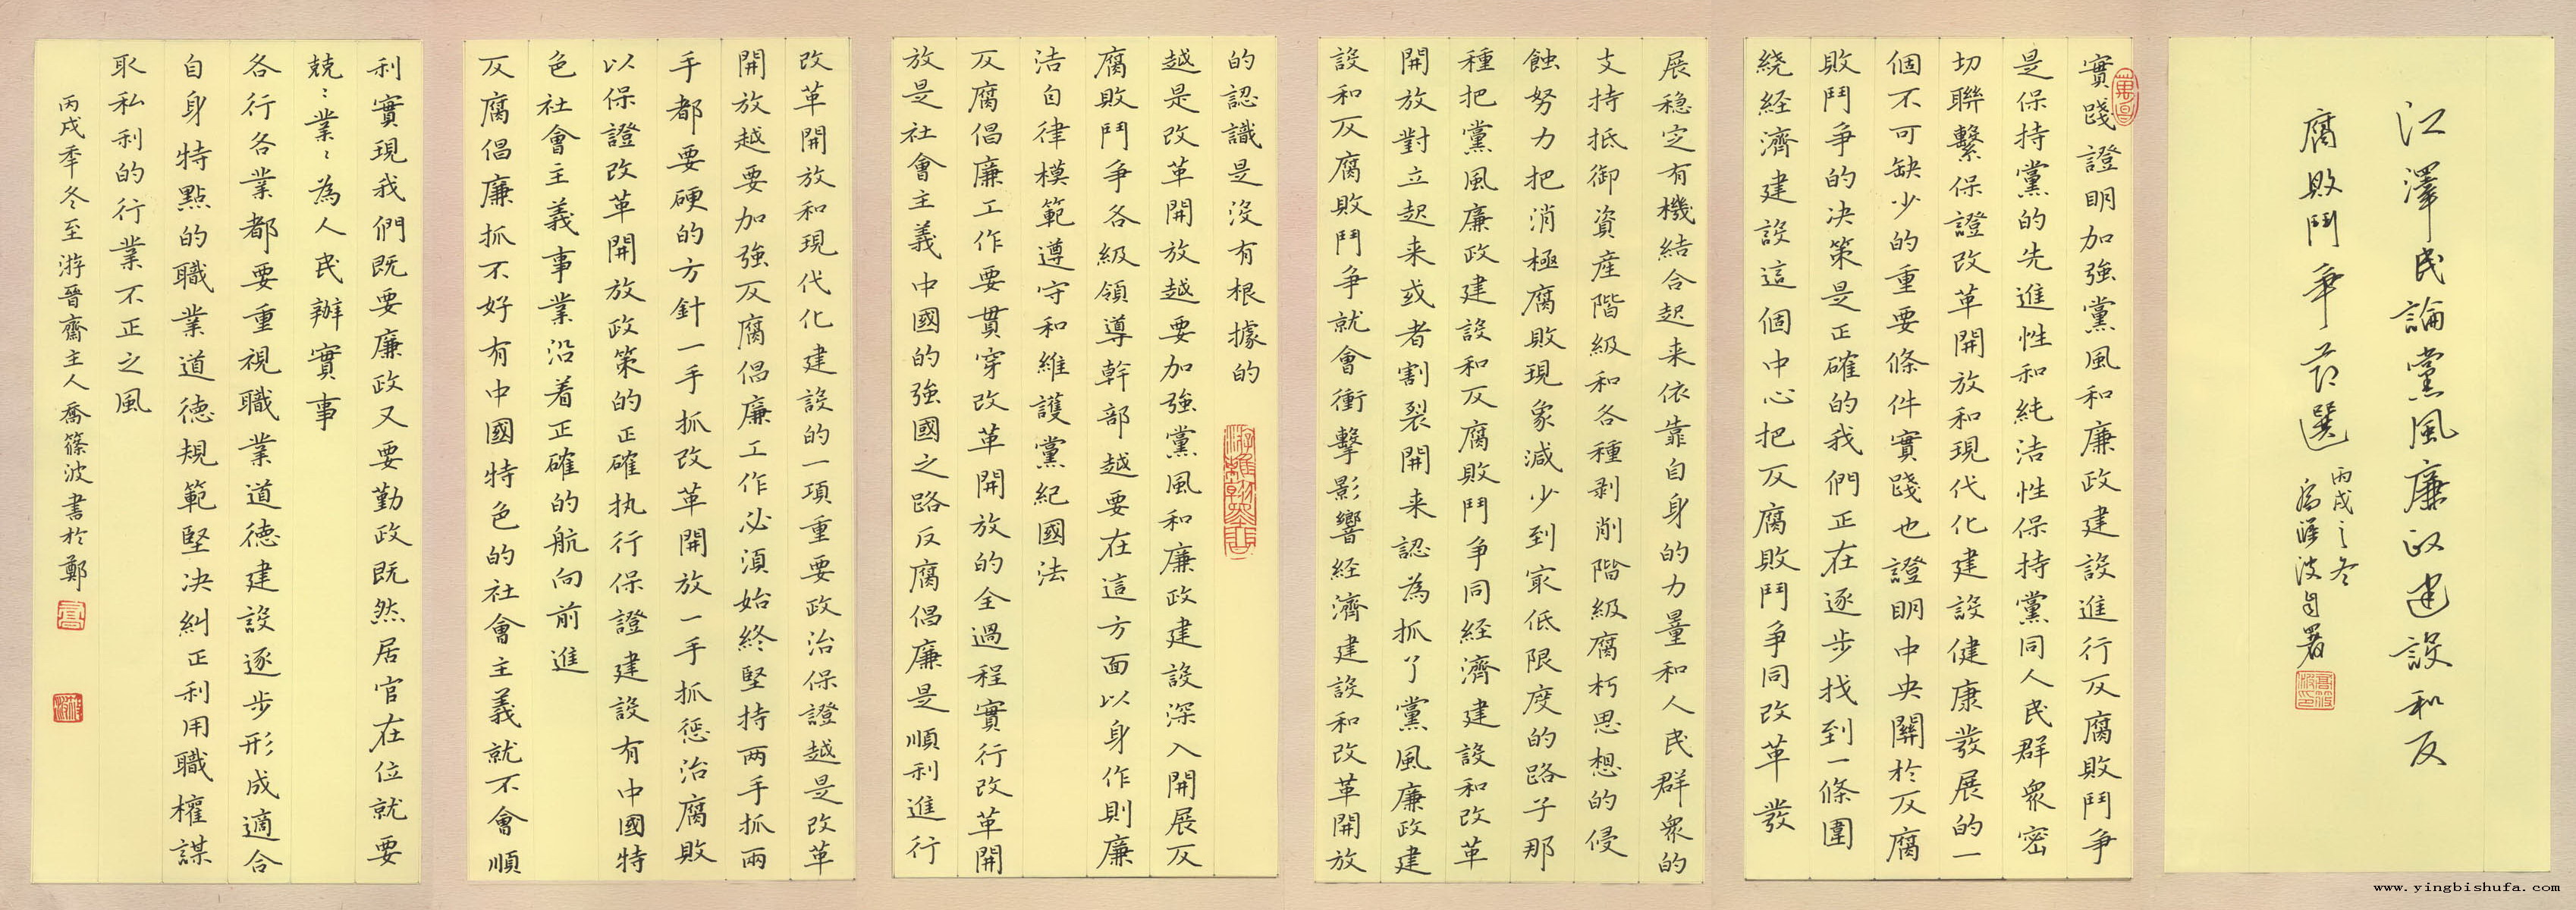 江澤民論黨風廉政建設和反
腐敗鬥爭節選
丙戌之冬
喬篠波自署
實踐證明加強黨風和廉政建設進行反腐敗鬥爭
是保持黨的先進性和純洁性保持黨同人民群衆密
切聯繫保證改革開放和現代化建設健康發展的一
個不可缺少的重要條件實踐也證明中央關於反腐
敗鬥爭的决策是正確的我們正在逐步找到一條圍
绕経濟建設這個中心把反腐敗鬥爭同改革發
展穩定有機結合起来依靠自身的力量和人民群衆的
支持抵御資産階級和各種剥削階級腐朽思想的侵
蝕努力把消極腐敗現象减少到最低限度的路子那
種把黨風廉政建設和反腐敗鬥争同経濟建設和改革
開放對立起来或者割裂開来認為抓了黨風廉政建
設和反腐敗鬥争就會衝擊影響経濟建設和改革開放
的認識是没有根據的
越是改革開放越要加強黨風和廉政建設深入開展反
腐敗鬥争各級領導幹部越要在這方面以身作則廉
洁自律模範遵守和維護黨紀國法
反腐倡廉工作要貫穿改革開放的全過程實行改革開
放是社會主義中國的強國之路反腐倡廉是順利進行
改革開放和現代化建設的一項重要政治保證越是改革
開放越要加強反腐倡廉工作必須始終堅持两手抓兩
手都要硬的方針一手抓改革開放一手抓惩治腐敗
以保證改革開放政策的正確执行保證建設有中國特
色社會主義事業沿着正確的航向前進
反腐倡廉抓不好有中國特色的社會主義就不會順
利實現我們既要廉政又要勤政既然居官在位就要
兢〻業〻為人民辦實事
各行各業都要重視職業道德建設逐步形成適合
自身特點的職業道德規範堅决糾正利用職權謀
取私利的行業不正之風
丙戌年冬至游晉齋主人喬篠波書於鄭
www.yingbishufa.com